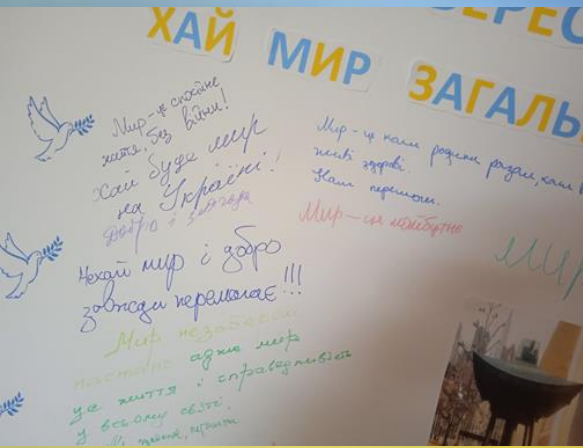 ВЕРЕС
ХАЙ МИР ЗАГАЛЬ
Мир - це спокійне
життя, без війни!
Хай буде мир
на Україні!
Добро і злагода
Нехай мир і добро
завжди перемагає!!!
Мир
настане адже мир
це життя і справедливість
у всьому світі.
Мир - це коли родини разом, коли в
живі здорові.
Наш перемоги.
Мир - це майбутнє
МИР